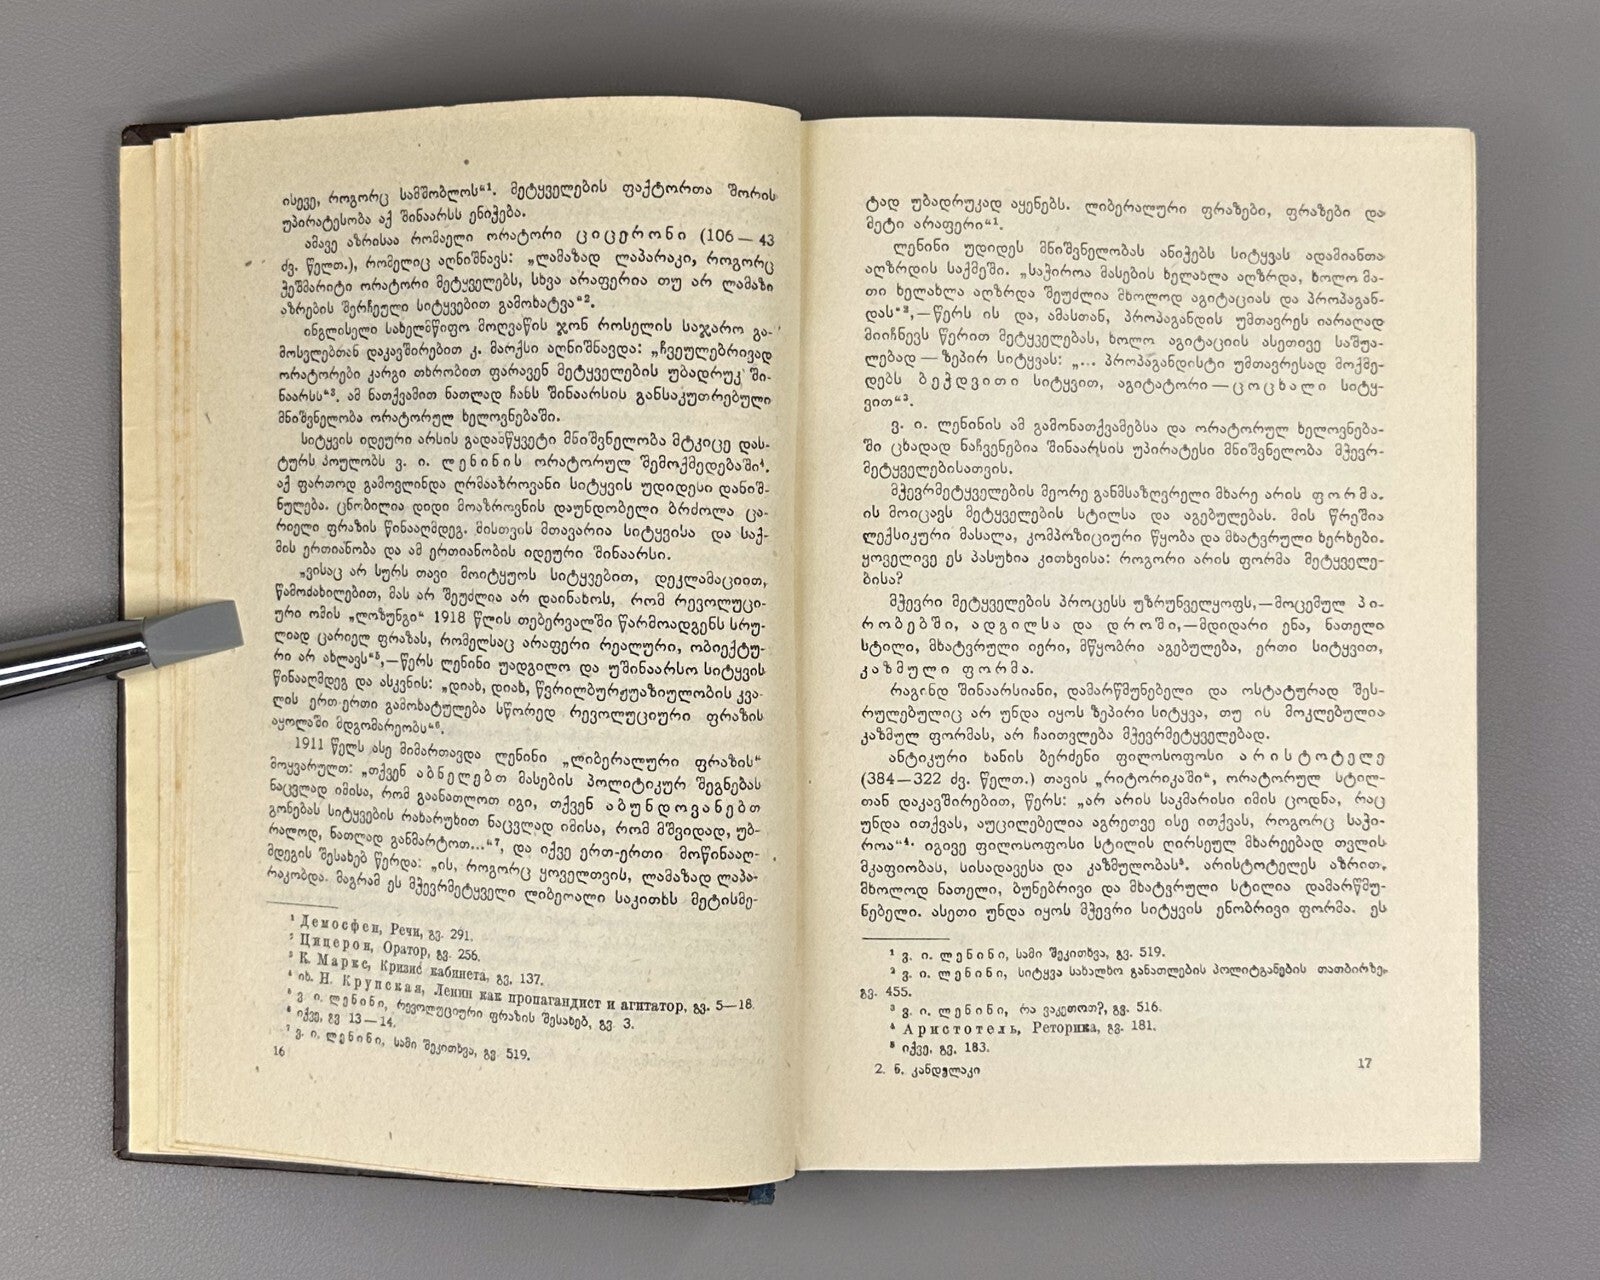 ისევე, როგორც სამშობლოს“¹. მეტყველების ფაქტორთა შორის
უპირატესობა აქ შინაარსს ენიჭება.
ამავე აზრისაა რომაელი ორატორი ციცერონი (106—43
ძვ. წელთ.), რომელიც აღნიშნავს: „ლამაზად ლაპარაკი, როგორც
ჭეშმარიტი ორატორი მეტყველებს, სხვა არაფერია თუ არ ლამაზი
აზრების შერჩეული სიტყვებით გამოხატვა“².
ინგლისელი სახელმწიფო მოღვაწის ჯონ როსელის საჯარო გა-
მოსვლებთან დაკავშირებით კ. მარქსი აღნიშნავდა: „ჩვეულებრივად
ორატორები კარგი თხრობით ფარავენ მეტყველების უბადრუკ ში-
ნაარსს“³. ამ ნათქვამით ნათლად ჩანს შინაარსის განსაკუთრებული
მნიშვნელობა ორატორულ ხელოვნებაში.
სიტყვის იდეური არსის გადამწყვეტი მნიშვნელობა მტკიცე დას-
ტურს პოულობს ვ. ი. ლენინის ორატორულ შემოქმედებაში⁴.
აქ ფართოდ გამოვლინდა ღრმააზროვანი სიტყვის უდიდესი დანიშ-
ნულება. ცნობილია დიდი მოაზროვნის დაუნდობელი ბრძოლა ცა-
რიელი ფრაზის წინააღმდეგ. მისთვის მთავარია სიტყვისა და საქ-
მის ერთიანობა და ამ ერთიანობის იდეური შინაარსი.
„ვისაც არ სურს თავი მოიტყუოს სიტყვებით, დეკლამაციით,
წამოძახილებით, მას არ შეუძლია არ დაინახოს, რომ რევოლუცი-
ური ომის „ლოზუნგი“ 1918 წლის თებერვალში წარმოადგენს სრუ-
ლიად ცარიელ ფრაზას, რომელსაც არაფერი რეალური, ობიექტუ-
რი არ ახლავს“⁵,—წერს ლენინი უადგილო და უშინაარსო სიტყვის
წინააღმდეგ და ასკვნის: „დიახ, დიახ, წვრილბურჟუაზიულობის კვა-
ლის ერთ-ერთი გამოხატულება სწორედ რევოლუციური ფრაზის
აყოლაში მდგომარეობს“⁶.
1911 წელს ასე მიმართავდა ლენინი „ლიბერალური ფრაზის“
მოყვარულთ: „თქვენ აბნელებთ მასების პოლიტიკურ შეგნებას
ნაცვლად იმისა, რომ გაანათლოთ იგი, თქვენ აბუნდოვანებთ
გონებას სიტყვების რახარუხით ნაცვლად იმისა, რომ მშვიდად, უბ-
რალოდ, ნათლად განმარტოთ...“⁷, და იქვე ერთ-ერთი მოწინააღ-
მდეგის შესახებ წერდა: „ის, როგორც ყოველთვის, ლამაზად ლაპა-
რაკობდა. მაგრამ ეს მჭევრმეტყველი ლიბერალი საკითხს მეტისმე-
¹ Демосфен, Речи, გვ. 291.
² Цицерон, Оратор, გვ. 256.
³ К. Маркс, Кризис кабинета, გვ. 137.
⁴ იხ. Н. Крупская, Ленин как пропагандист и агитатор, გვ. 5—18.
⁵ ვ. ი. ლენინი, რევოლუციური ფრაზის შესახებ, გვ. 3.
⁶ იქვე, გვ 13—14.
⁷ ვ. ი. ლენინი, სამი შეკითხვა, გვ. 519.
16
ტად უბადრუკად აყენებს. ლიბერალური ფრაზები, ფრაზები და
მეტი არაფერი“¹.
ლენინი უდიდეს მნიშვნელობას ანიჭებს სიტყვას ადამიანთა
აღზრდის საქმეში. „საჭიროა მასების ხელახლა აღზრდა, ხოლო მა-
თი ხელახლა აღზრდა შეუძლია მხოლოდ აგიტაციას და პროპაგან-
დას“²,—წერს ის და, ამასთან, პროპაგანდის უმთავრეს იარაღად
მიიჩნევს წერით მეტყველებას, ხოლო აგიტაციის ასეთივე საშუა-
ლებად — ზეპირ სიტყვას: „... პროპაგანდისტი უმთავრესად მოქმე-
დებს ბეჭდვითი სიტყვით, აგიტატორი — ცოცხალი სიტყ-
ვით“³.
ვ. ი. ლენინის ამ გამონათქვამებსა და ორატორულ ხელოვნება-
ში ცხადად ნაჩვენებია შინაარსის უპირატესი მნიშვნელობა მჭევრ-
მეტყველებისათვის.
მჭევრმეტყველების მეორე განმსაზღვრელი მხარე არის ფორმა.
ის მოიცავს მეტყველების სტილსა და აგებულებას. მის წრეშია
ლექსიკური მასალა, კომპოზიციური წყობა და მხატვრული ხერხები.
ყოველივე ეს პასუხია კითხვისა: როგორი არის ფორმა მეტყველე-
ბისა?
მჭევრი მეტყველების პროცესს უზრუნველყოფს,—მოცემულ პი-
რობებში, ადგილსა და დროში,—მდიდარი ენა, ნათელი
სტილი, მხატვრული იერი, მწყობრი აგებულება, ერთი სიტყვით,
კაზმული ფორმა.
რაგინდ შინაარსიანი, დამარწმუნებელი და ოსტატურად შეს-
რულებულიც არ უნდა იყოს ზეპირი სიტყვა, თუ ის მოკლებულია
კაზმულ ფორმას, არ ჩაითვლება მჭევრმეტყველებად.
ანტიკური ხანის ბერძენი ფილოსოფოსი არისტოტელე
(384—322 ძვ. წელთ.) თავის „რიტორიკაში“, ორატორულ სტილ-
თან დაკავშირებით, წერს: „არ არის საკმარისი იმის ცოდნა, რაც
უნდა ითქვას, აუცილებელია აგრეთვე ისე ითქვას, როგორც საჭი-
როა“⁴. იგივე ფილოსოფოსი სტილის ღირსეულ მხარეებად თვლის
მკაფიობას, სისადავესა და კაზმულობას⁵. არისტოტელეს აზრით,
მხოლოდ ნათელი, ბუნებრივი და მხატვრული სტილია დამარწმუ-
ნებელი. ასეთი უნდა იყოს მჭევრი სიტყვის ენობრივი ფორმა. ეს
¹ ვ. ი. ლენინი, სამი შეკითხვა, გვ. 519.
² ვ. ი. ლენინი, სიტყვა სახალხო განათლების პოლიტგანების თათბირზე,
გვ. 455.
³ ვ. ი. ლენინი, რა ვაკეთოთ?, გვ. 516.
⁴ Аристотель, Реторика, გვ. 181.
⁵ იქვე, გვ. 183.
2. ნ. კანდელაკი
17